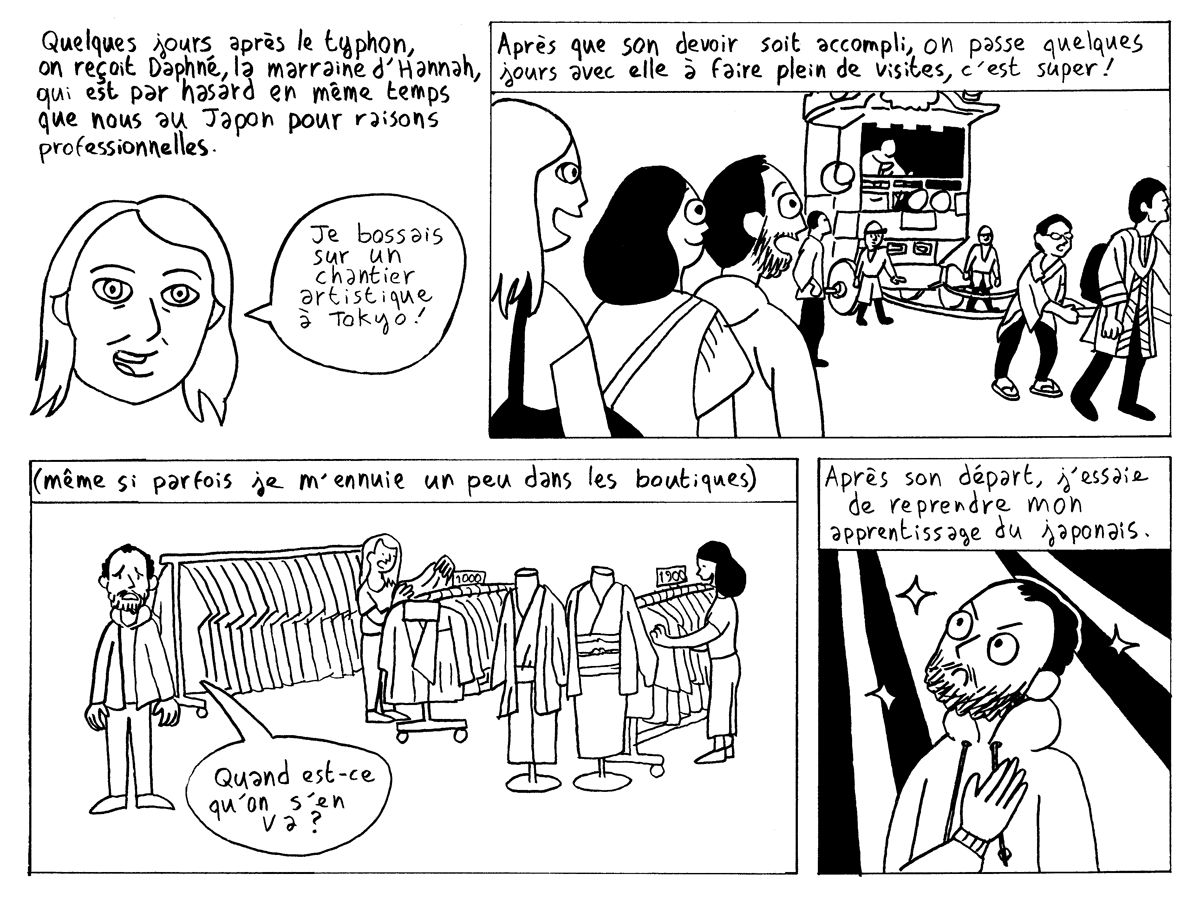 Quelques jours après le typhon,
on reçoit Daphné, la marraine d'Hannah,
qui est par hasard en même temps
que nous au Japon pour raisons
professionnelles.
Je bossais
sur un
chantier
artistique
à Tokyo!
Après que son devoir soit accompli, on passe quelques
jours avec elle à faire plein de visites, c'est super!
(même si parfois je m'ennuie un peu dans les boutiques)
1000
1900
Quand est-ce
qu'on s'en
va?
Après son départ, j'essaie
de reprendre mon
apprentissage du japonais.